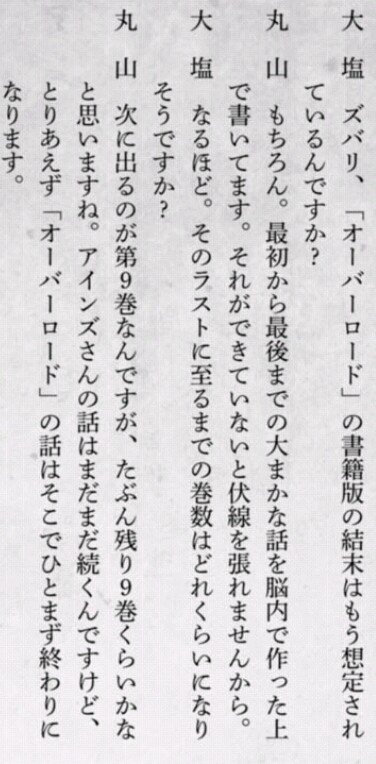 大　塩　ズバリ、「オーバーロード」の書籍版の結末はもう想定され
ているんですか？
丸　山　もちろん。最初から最後までの大まかな話を脳内で作った上
で書いてます。それができていないと伏線を張れませんから。
大　塩　なるほど。そのラストに至るまでの巻数はどれくらいになり
そうですか？
丸　山　次に出るのが第９巻なんですが、たぶん残り９巻くらいかな
と思いますね。アインズさんの話はまだまだ続くんですけど、
とりあえず「オーバーロード」の話はそこでひとまず終わりに
なります。